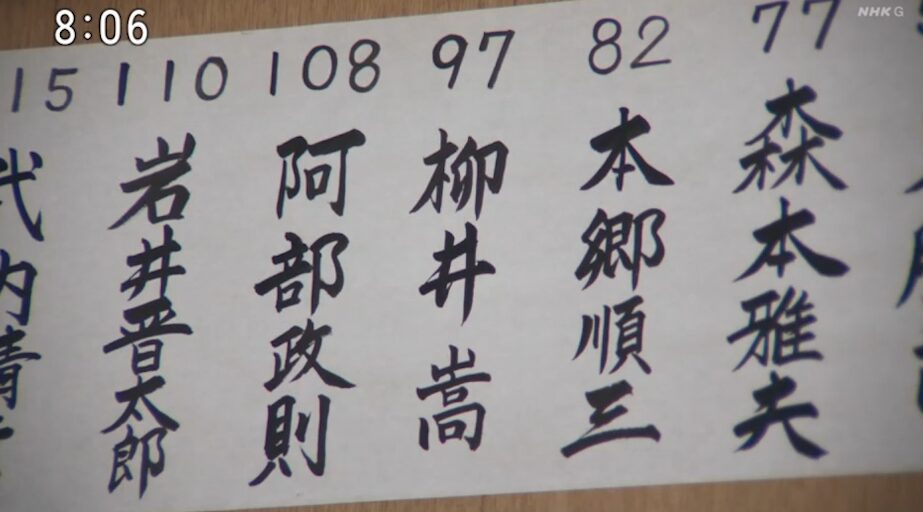 8:06
NHK G
77
森本雅夫
82
本郷順三
97
柳井嵩
108
阿部政則
110
岩井晋太郎
15